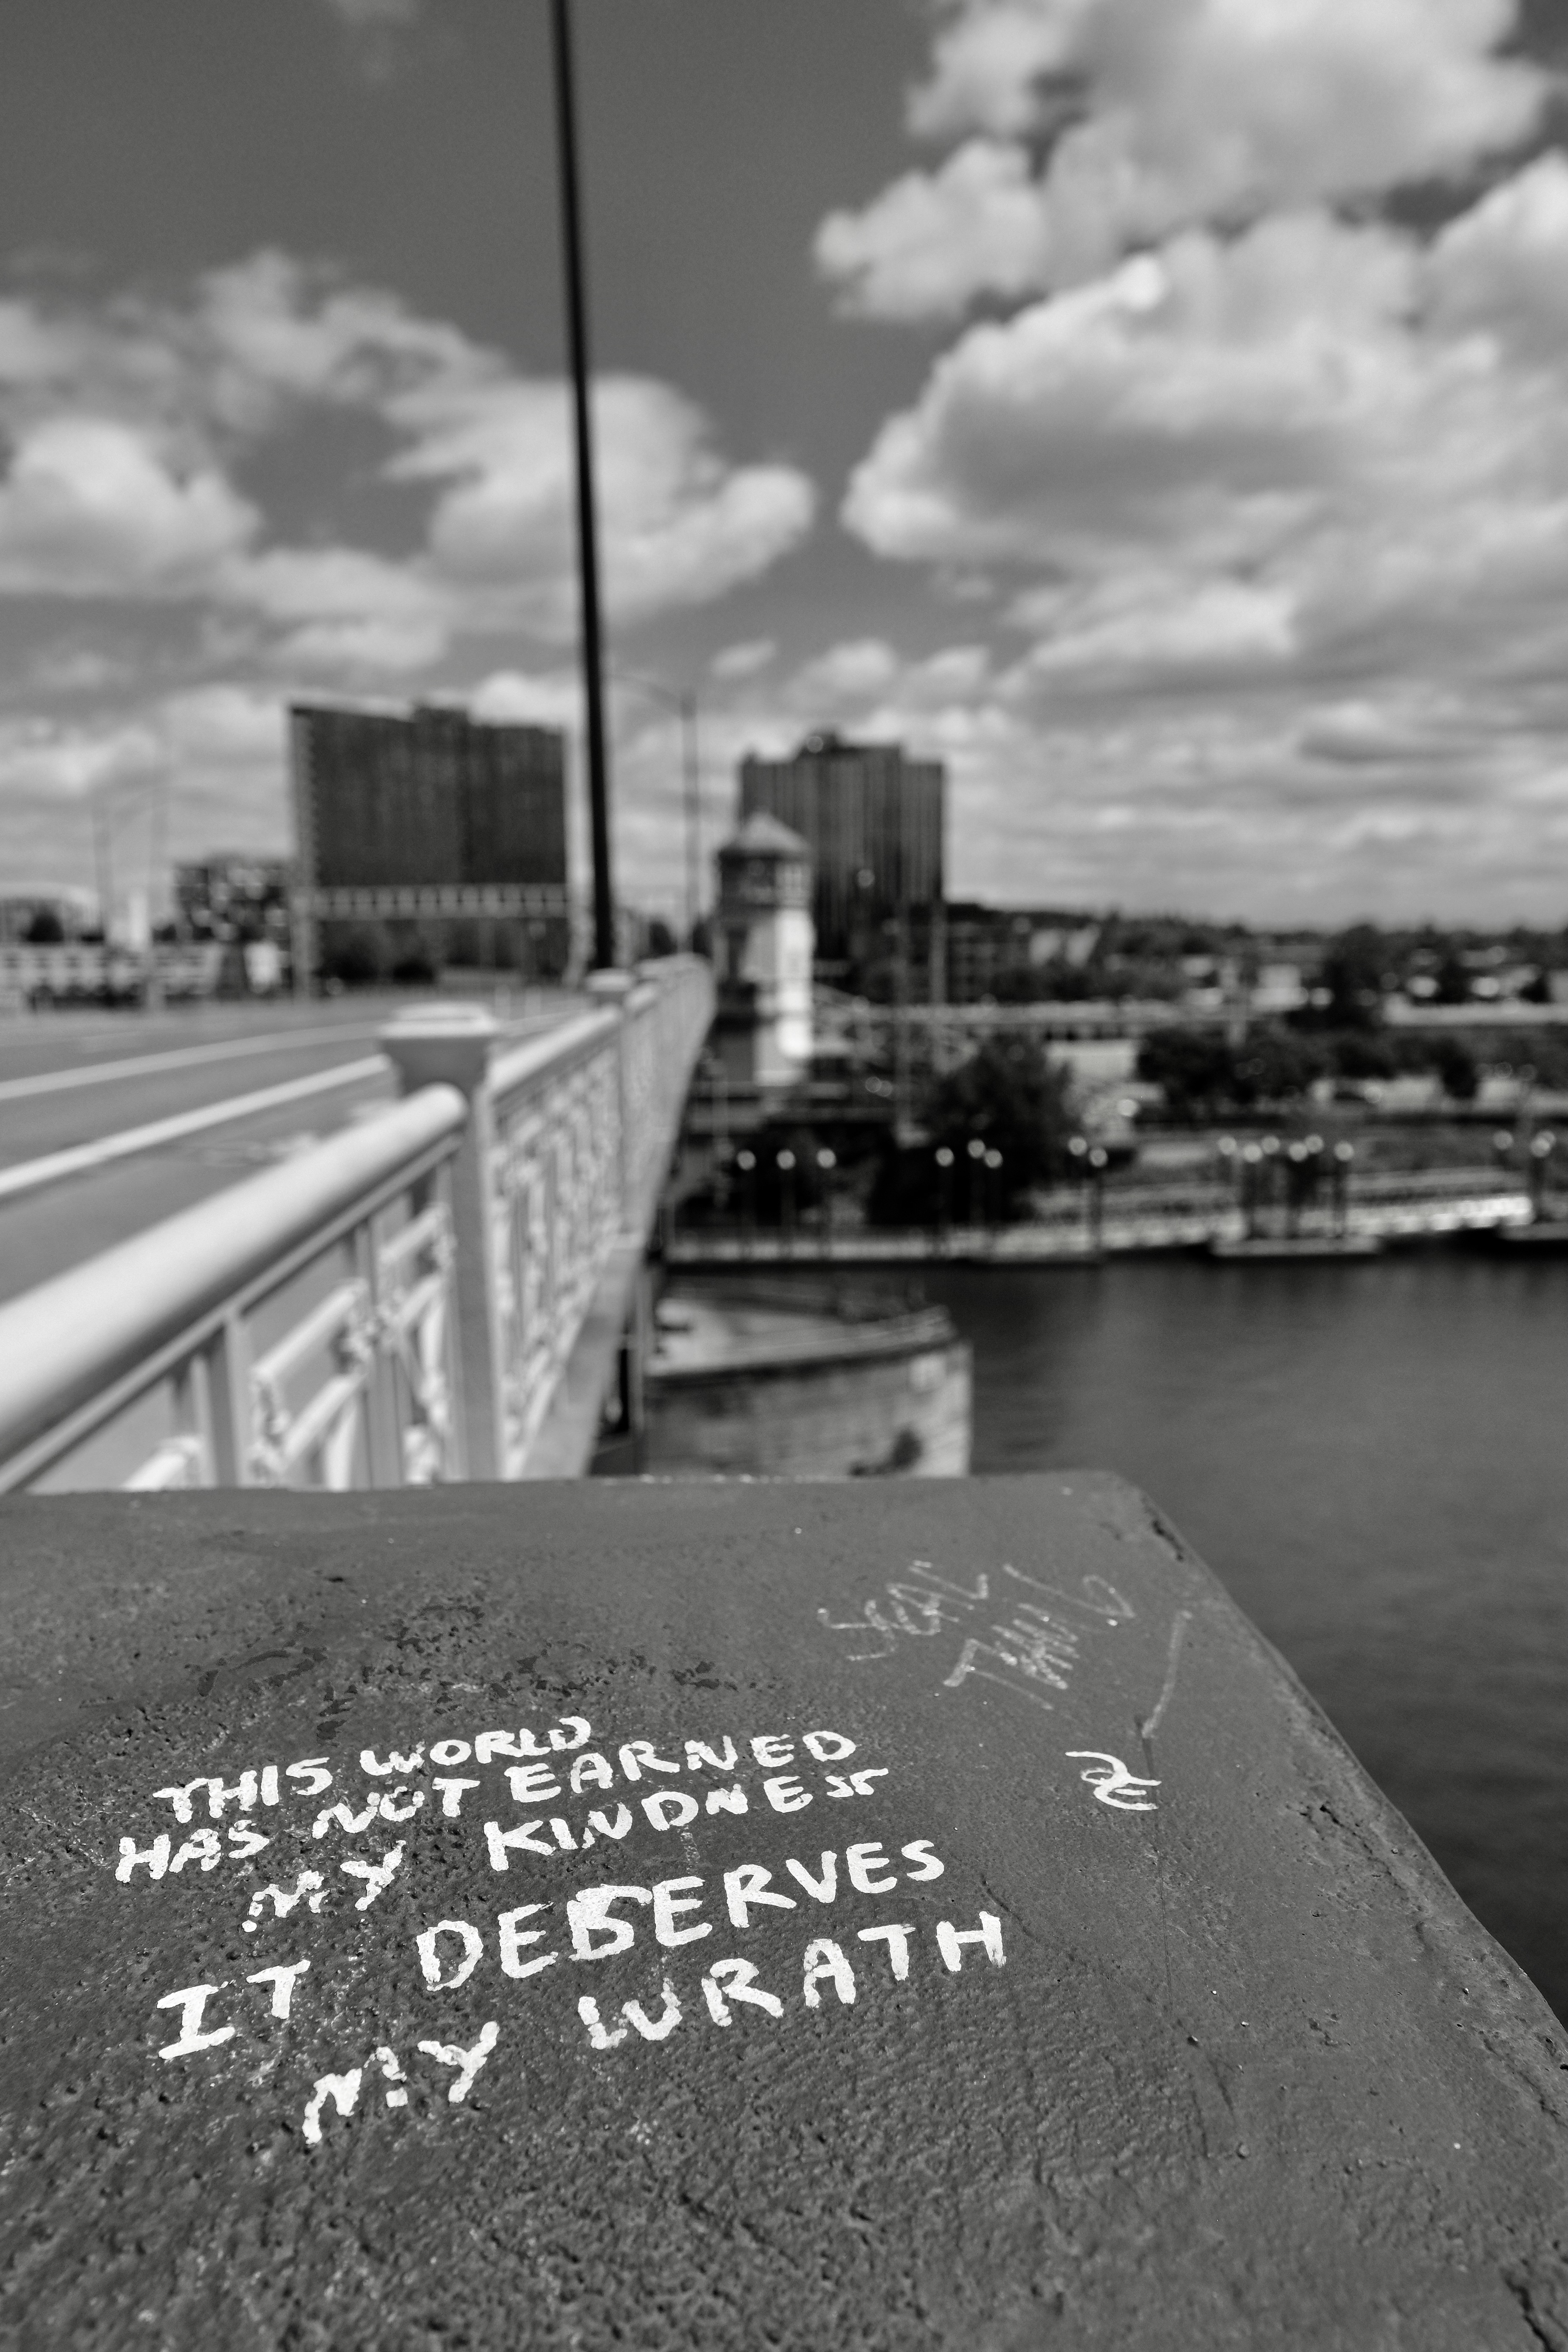 SEAL
TEAM 6
THIS WORLD
HAS NOT EARNED
MY KINDNESS
IT DESERVES
MY WRATH